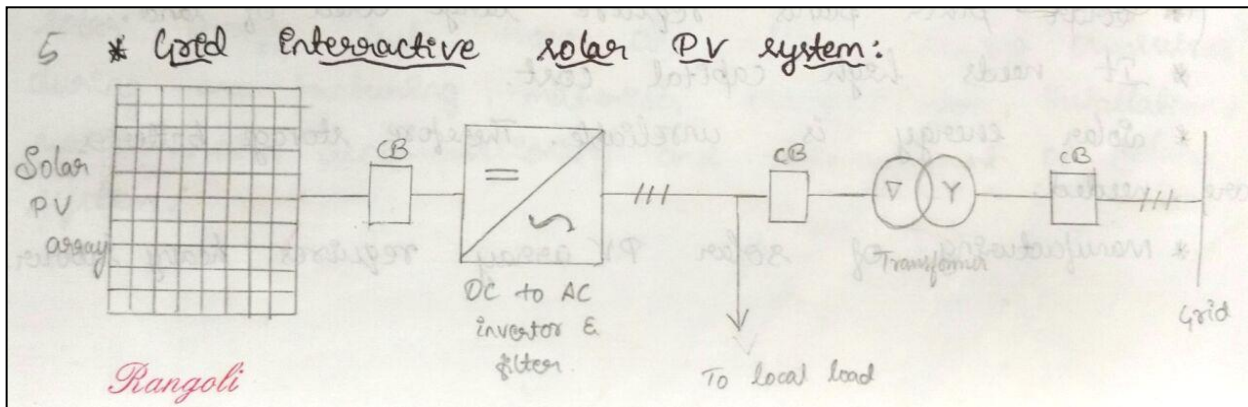 5 * Grid interractive solar PV system:
Solar
PV
array
CB
=
~
DC to AC
invertor &
filter.
CB
To local load
∇ Y
Transformer
CB
Grid
Rangoli